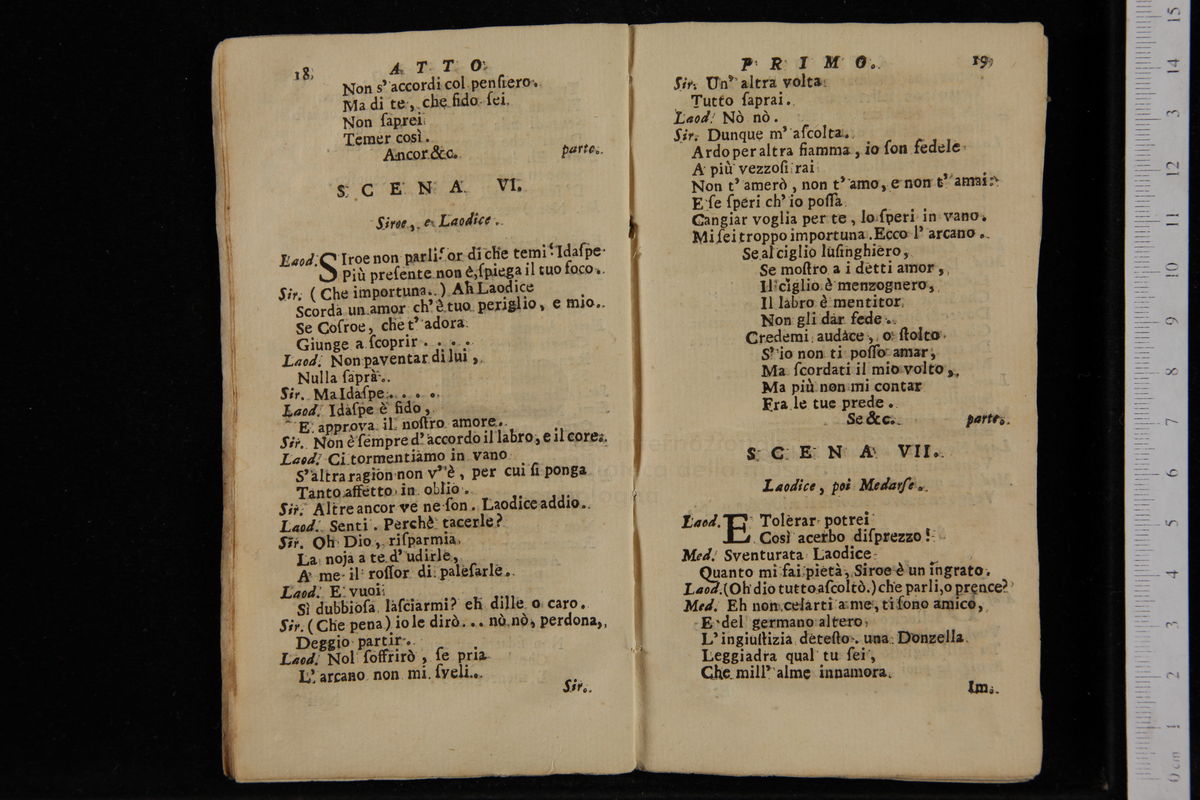 18
ATTO
Non s' accordi col penſiero.
Ma di te, che fido ſei.
Non ſaprei
Temer così.
Ancor &c. parte.
SCENA VI.
Siroe, e Laodice.
Laod. SIroe non parli? or di che temi? Idaſpe
Più preſente non è, ſpiega il tuo foco.
Sir. (Che importuna.) Ah Laodice
Scorda un amor ch' è tuo periglio, e mio.
Se Coſroe, che t' adora
Giunge a ſcoprir . . . .
Laod. Non paventar di lui,
Nulla ſaprà.
Sir. Ma Idaſpe . . . .
Laod. Idaſpe è fido,
E approva il noſtro amore.
Sir. Non è ſempre d' accordo il labro, e il core.
Laod. Ci tormentiamo in vano
S' altra ragion non v' è, per cui ſi ponga
Tanto affetto in oblio.
Sir. Altre ancor ve ne ſon. Laodice addio.
Laod. Senti. Perchè tacerle?
Sir. Oh Dio, riſparmia
La noja a te d' udirle,
A me il roſſor di paleſarle.
Laod. E vuoi
Sì dubbioſa laſciarmi? eh dille o caro.
Sir. (Che pena) io le dirò... nò nò, perdona,
Deggio partir.
Laod. Nol ſoffrirò, ſe pria
L' arcano non mi ſveli.
Sir.
PRIMO.
19
Sir. Un' altra volta
Tutto ſaprai.
Laod. Nò nò.
Sir. Dunque m' aſcolta.
Ardo per altra fiamma, io ſon fedele
A più vezzoſi rai
Non t' amerò, non t' amo, e non t' amai:
E ſe ſperi ch' io poſſa
Cangiar voglia per te, lo ſperi in vano.
Mi ſei troppo importuna. Ecco l' arcano.
Se al ciglio luſinghiero,
Se moſtro a i detti amor,
Il ciglio è menzognero,
Il labro è mentitor
Non gli dar fede.
Credemi audace, o ſtolto
S' io non ti poſſo amar,
Ma ſcordati il mio volto,
Ma più non mi contar
Fra le tue prede.
Se &c. parte.
SCENA VII.
Laodice, poi Medarſe.
Laod. E Tolerar potrei
Così acerbo diſprezzo!
Med. Sventurata Laodice
Quanto mi fai pietà, Siroe è un ingrato.
Laod. (Oh dio tutto aſcoltò.) che parli, o prence?
Med. Eh non celarti a me, ti ſono amico,
E del germano altero
L' ingiuſtizia deteſto. una Donzella
Leggiadra qual tu ſei,
Che mill' alme innamora.
Im.
0 cm 1 2 3 4 5 6 7 8 9 10 11 12 13 14 15